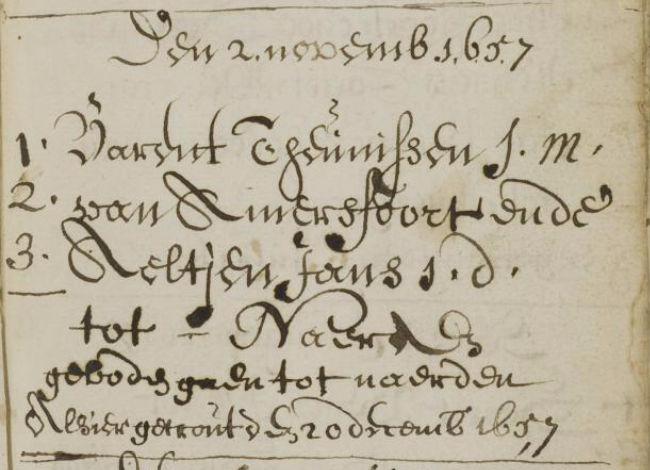 Den 2. novemb 1657
1. Barent Theunissen J. m.
2. van Amersfoort ende
3. Aeltjen Jans J. d.
tot Naerden
geboden tot naerden
Alhier getrout den 20 decemb 1657